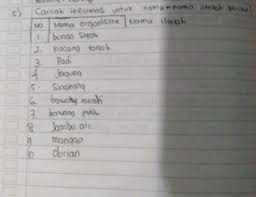 5) Carilah informasi untuk nama-nama ilmiah berikut
No Nama organisme Nama ilmiah
1. bunga Sepatu
2. kacang tanah
3. Padi
4. Jagung
5. Singkong
6. bawang merah
7. bawang putih
8 Jambu air
9 mangga
10 durian